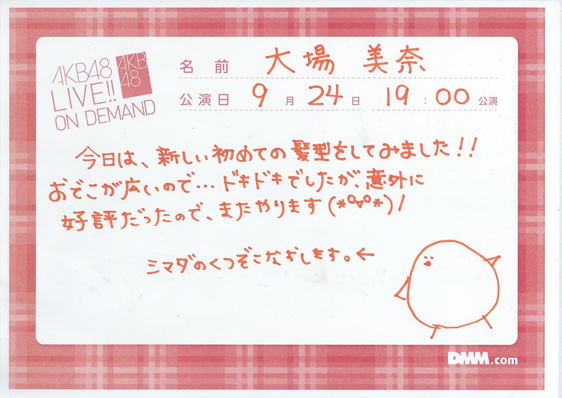 AKB48
LIVE!!
ON DEMAND
AKB
48
名前 大場 美奈
公演日 9月24日 19:00公演
今日は、新しい初めての髪型をしてみました!!
おでこが広いので…ドキドキでしたが、意外に
好評だったので、またやります(*°∀°*)/
シマダのくつぞこなおします。←
DMM.com